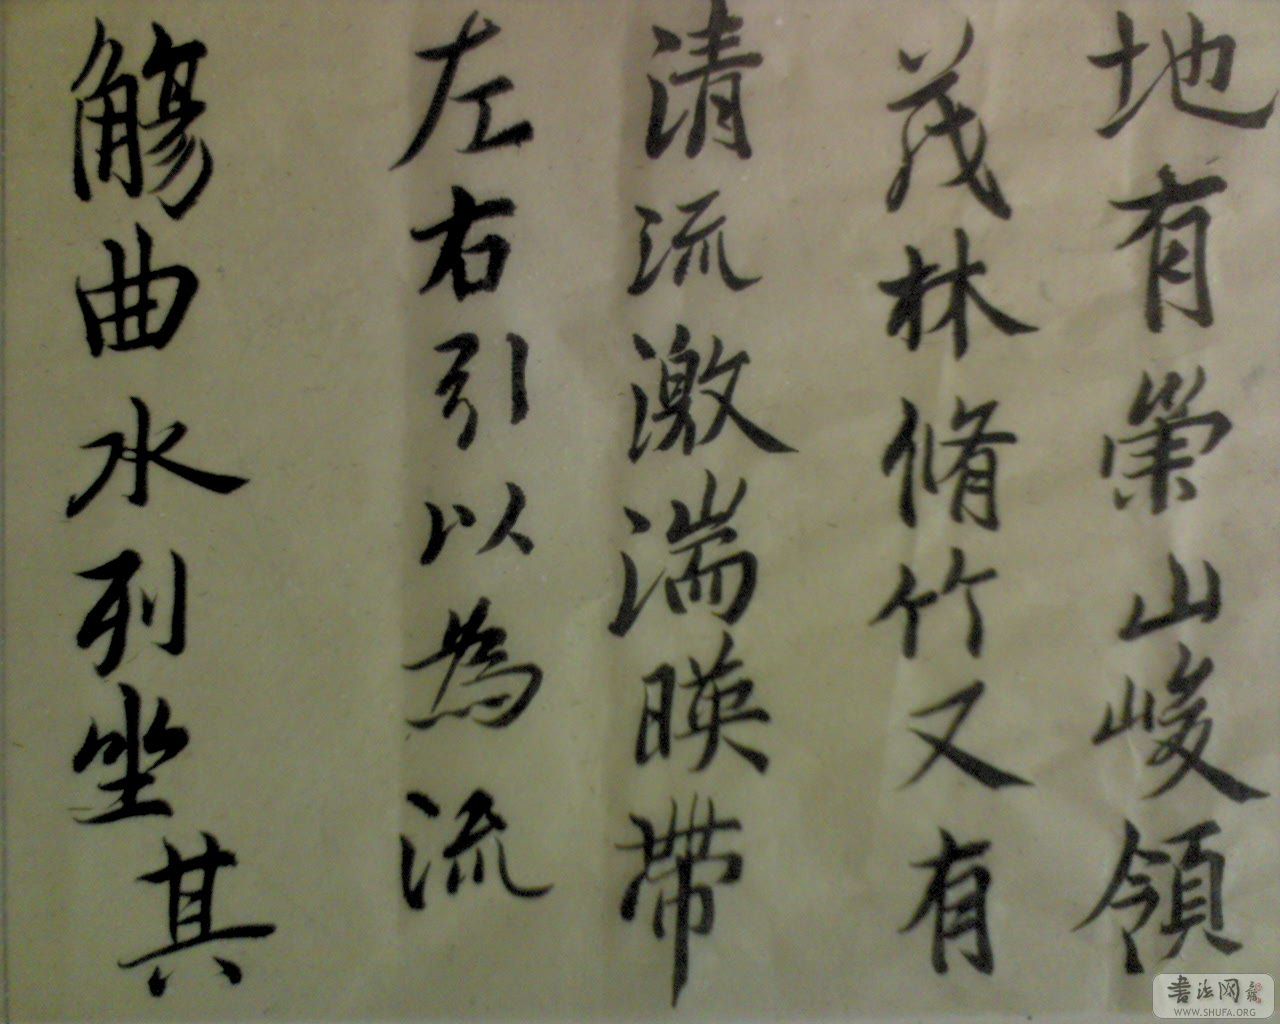 地有崇山峻領
茂林脩竹又有
清流激湍暎帶
左右引以為流
觴曲水列坐其
书法网
WWW.SHUFA.ORG